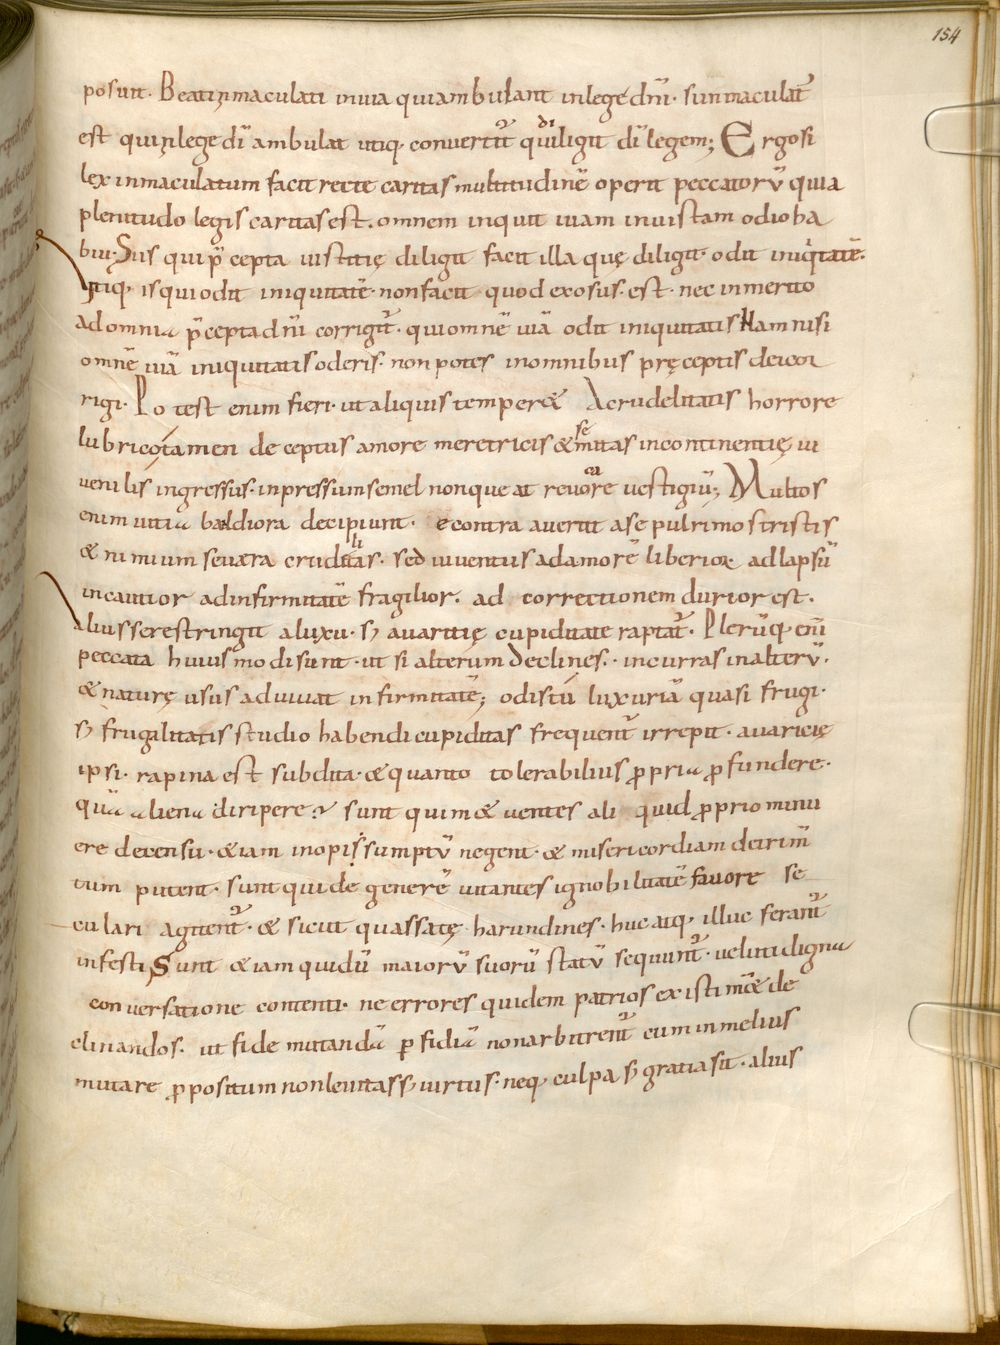 154
posuit. Beati inmaculati in uia qui ambulant in lege dñi. si inmaculat᷒
est qui in lege dī ambulat utiq; conuertit᷒ qui diligit dī legem; Ergo si
lex inmaculatum facit recte caritas multitudinē operit peccatorū quia
plenitudo legis caritas est. omnem inquit uiam iniustam odio ha
bui. Suis qui p̄cepta iustitię diligit facit illa quę diligit. odit iniqitatē.
utiq; is qui odit iniquitatē. non facit quod exosus. est. nec inmerito
ad omnia p̄cepta dñi corrigit᷒. qui omnē uiā odit iniquitatis Nam nisi
omnē uiā iniquitatis oderis. non potes in omnibus pręceptis dei cor
rigi. Potest enim fieri. ut aliquis temperet A crudelitatis horrore
lubrico tamen deceptus amore meretricis & semitas incontinentię iu
uenilis ingressus. inpressum semel non queat reuocare uestigiū; Multos
enim uitia baldiora decipiunt. e contra auertit a se pulrimos tristis
& nimium seuera crudelitas. sed iuuentus ad amorē liberior ad lapsū
incautior ad infirmitatē fragilior. ad correctionem durior est.
alius se restringit a luxu. s; auaritię cupiditate raptat᷒. Plerūq; enī
peccata huiusmodi sunt. ut si alterum declines. incurras in alterū.
& naturę usus adiuuat infirmitatē; odisti luxuriā quasi frugi.
s; frugilitatis studio habendi cupiditas frequent᷒ irrepit. auaricię
ipsi. rapina est subdita. & quanto tolerabilius p̱pria p̱fundere.
quā aliena diripere? sunt qui mouentes aliquid p̱prio minu
ere decensu. etiam inopi sumptū negent. & misericordiam detrim̄
tum putent. sunt qui de generē uitantes ignobilitatē fauore se
culari agitent᷒. & sicut quassatę harundines. huc atq; illuc ferant᷒
infesti Sunt etiam qui dū maiorū suorū statū sequunt᷒. uel uti digna
conuersatione contenti. ne errores quidem patrios existimet de
clinandos. ut fide mutandā p̱fidiā non arbitrent᷒ cum in melius
mutare p̱positum non leuitas s; uirtus. neq; culpa s; gratia sit. alius